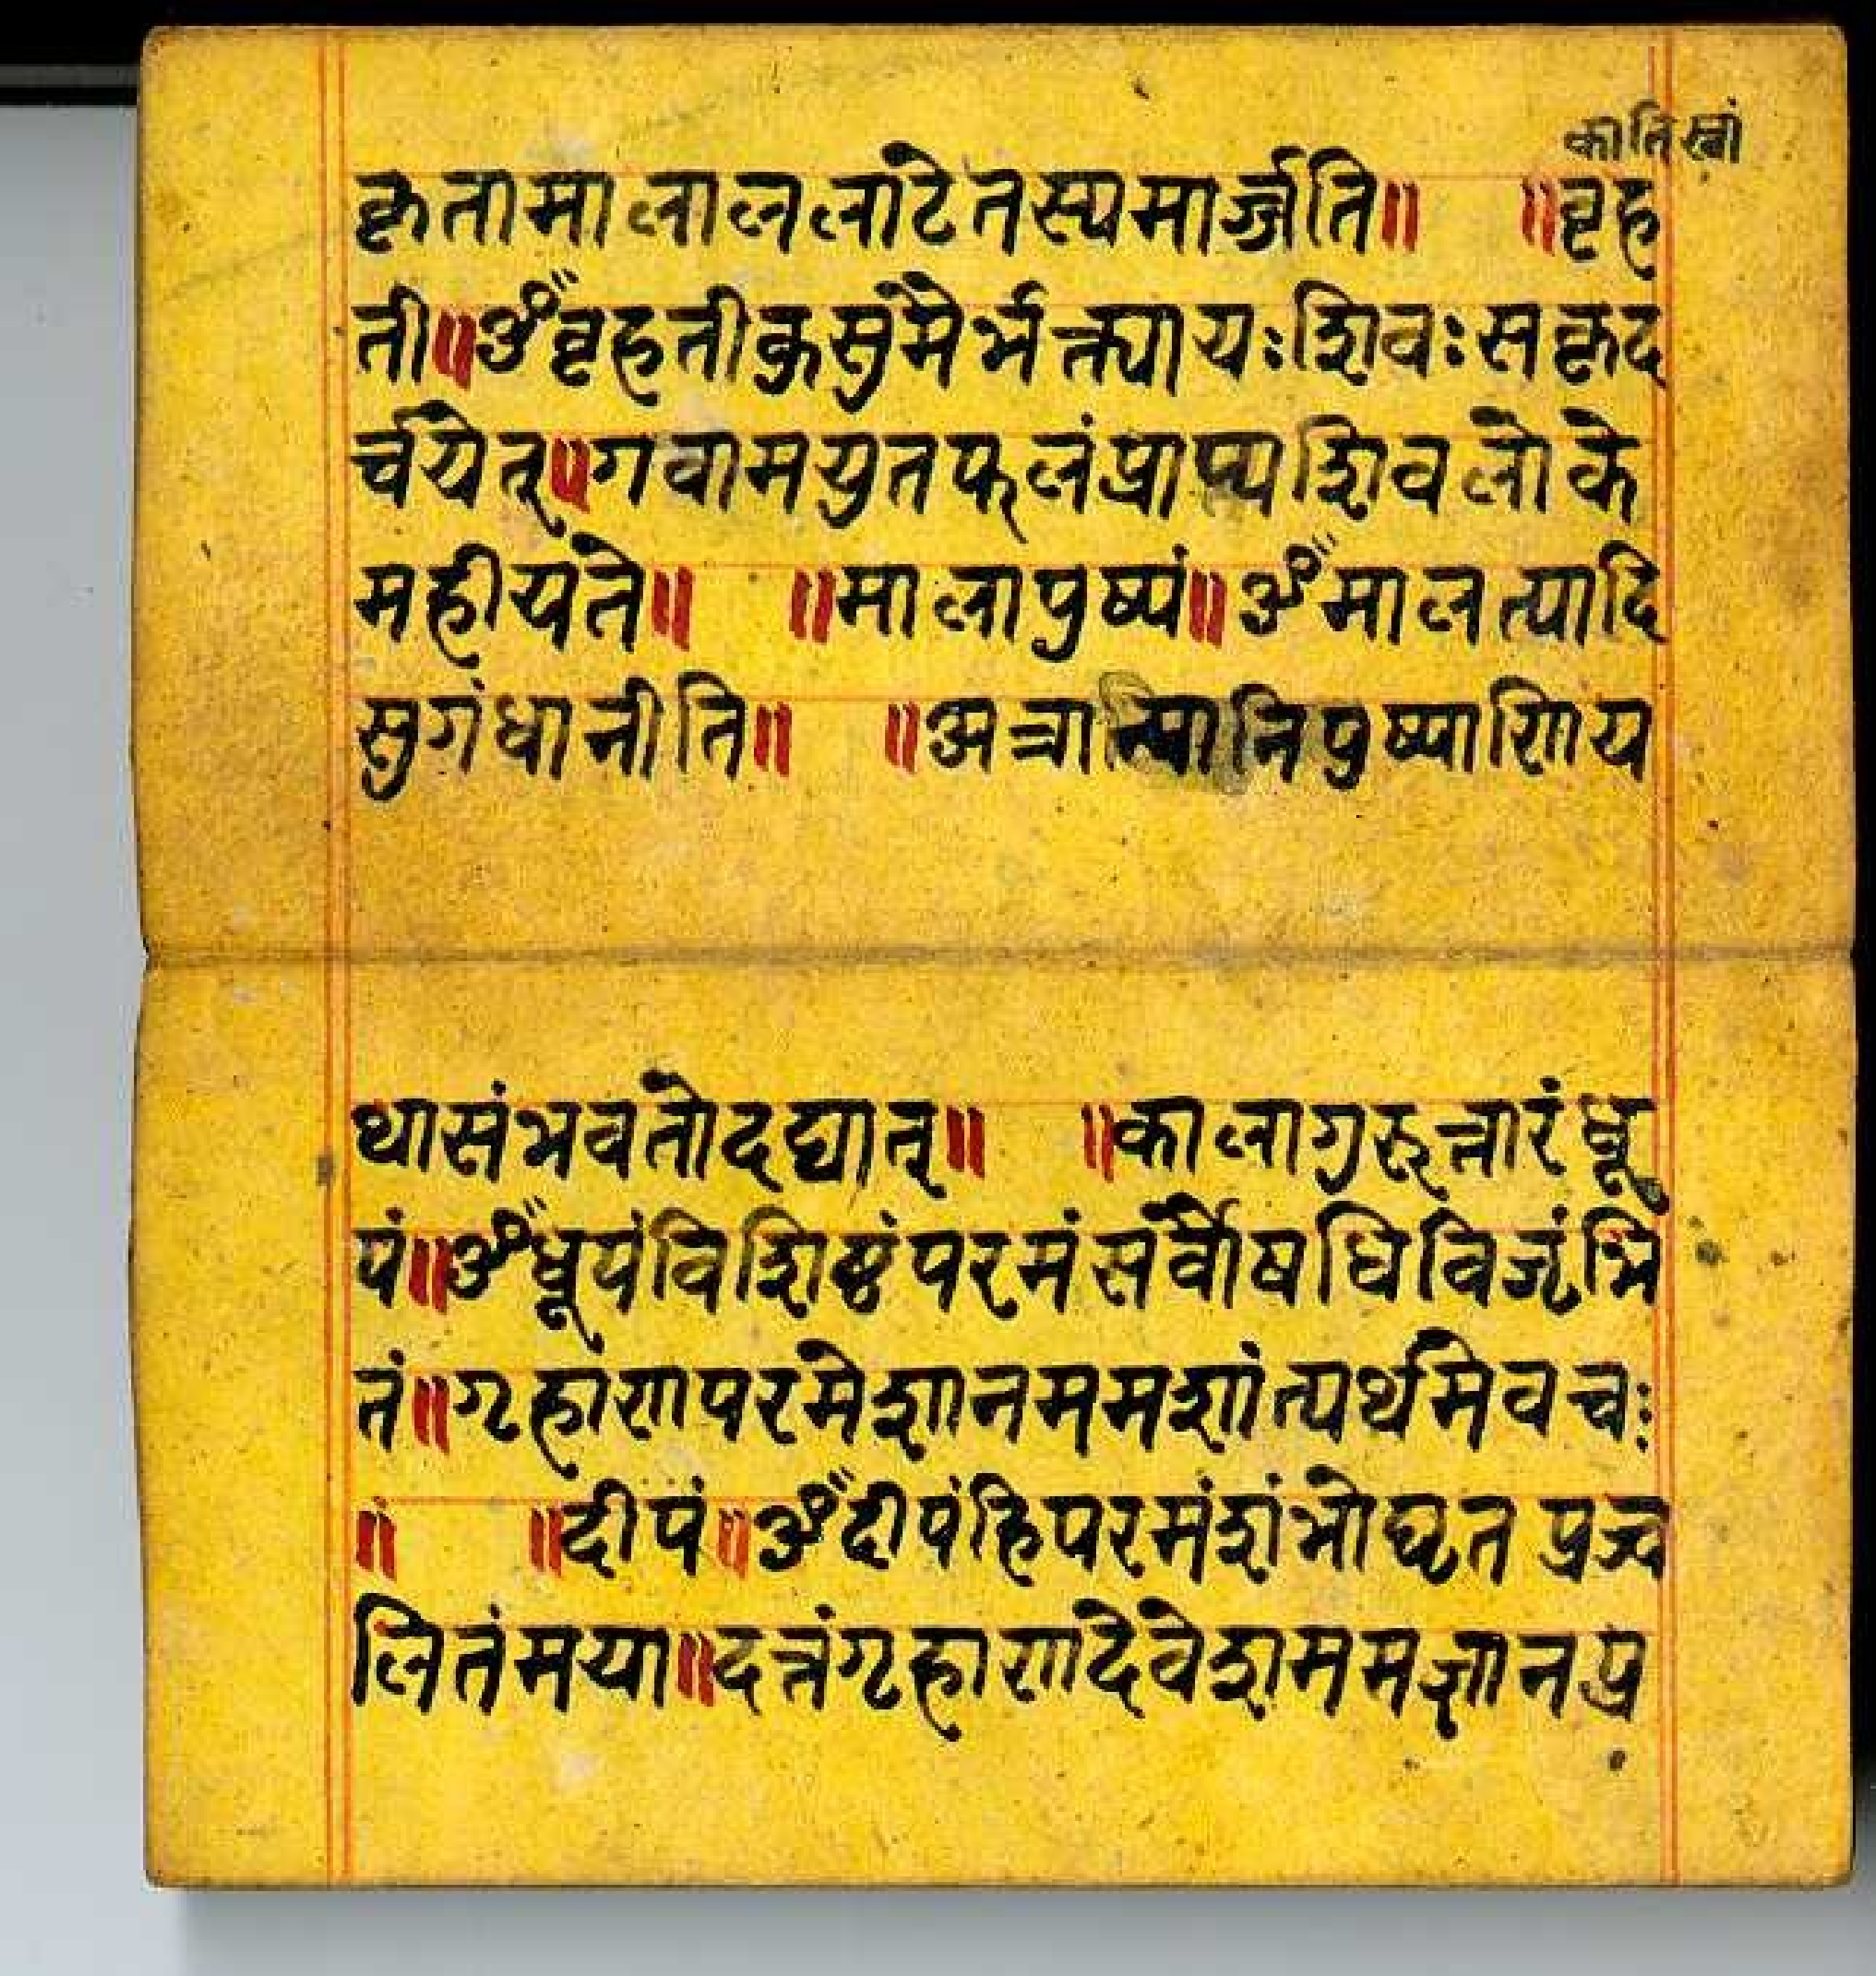 कृतामालाललाटेतस्यमार्ज्जति॥ ॥वृह
ती॥ॐवृहतीकुसुमैर्भक्त्यायःशिवःसकृद
र्चयेत्॥गवामयुतफलंप्राप्यशिवलोके
महीयते॥ ॥मालापुष्पं॥ॐमालत्यादि
सुगंधानीति॥ ॥अत्रान्यानिपुष्पाणिय
थासंभवतोदद्यात्॥ ॥कालागुरुत्तारंधू
पं॥ॐधूपंविशिष्टंपरमंसर्वौषधिविजृंभि
तं॥गृह्णाणपरमेशानममशांत्यर्थमेवचः
॥ ॥दीपं॥ॐदीपंहिपरमंशंभोघृतप्रज्व
लितंमया॥दत्तंगृह्णाणदेवेशममज्ञानप्र